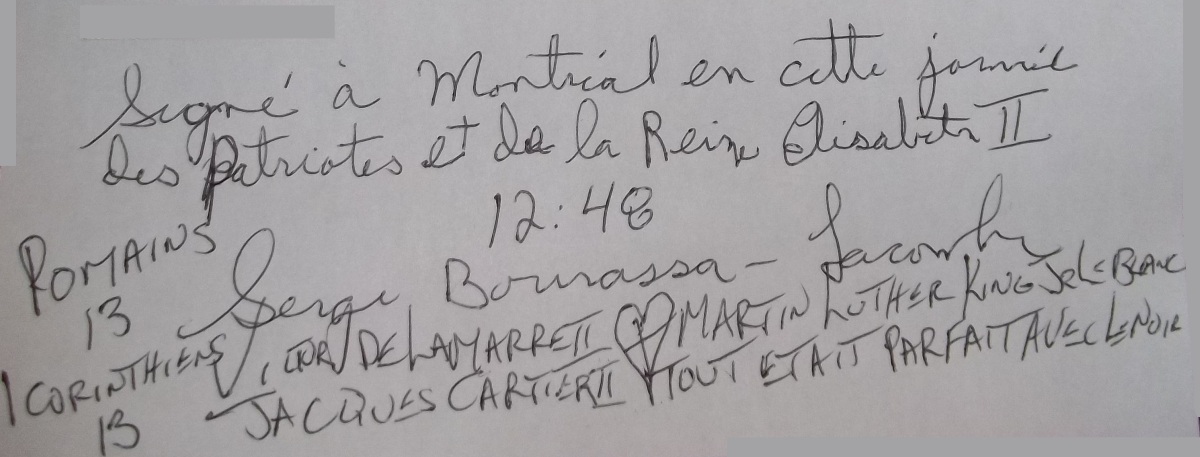 Signé à Montréal en cette journée
des Patriotes et de la Reine Élisabeth II
12:48
ROMAINS
13
Serge Bourassa-Lacombe
1 CORINTHIENS
13
VICTOR DELAMARRE II MARTIN LUTHER KING JR LE BLANC
JACQUES CARTIER II TOUT ETAIT PARFAIT AVEC LE NOIR